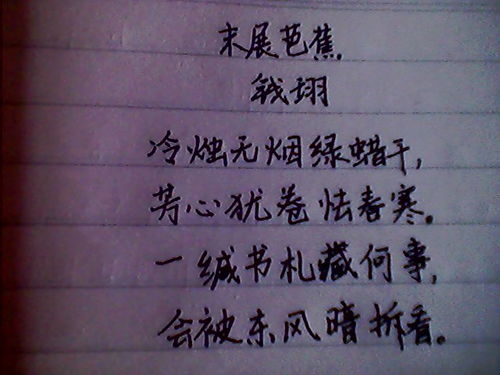 末展芭蕉
钱珝
冷烛无烟绿蜡干,
芳心犹卷怯春寒。
一缄书札藏何事,
会被东风暗拆看。